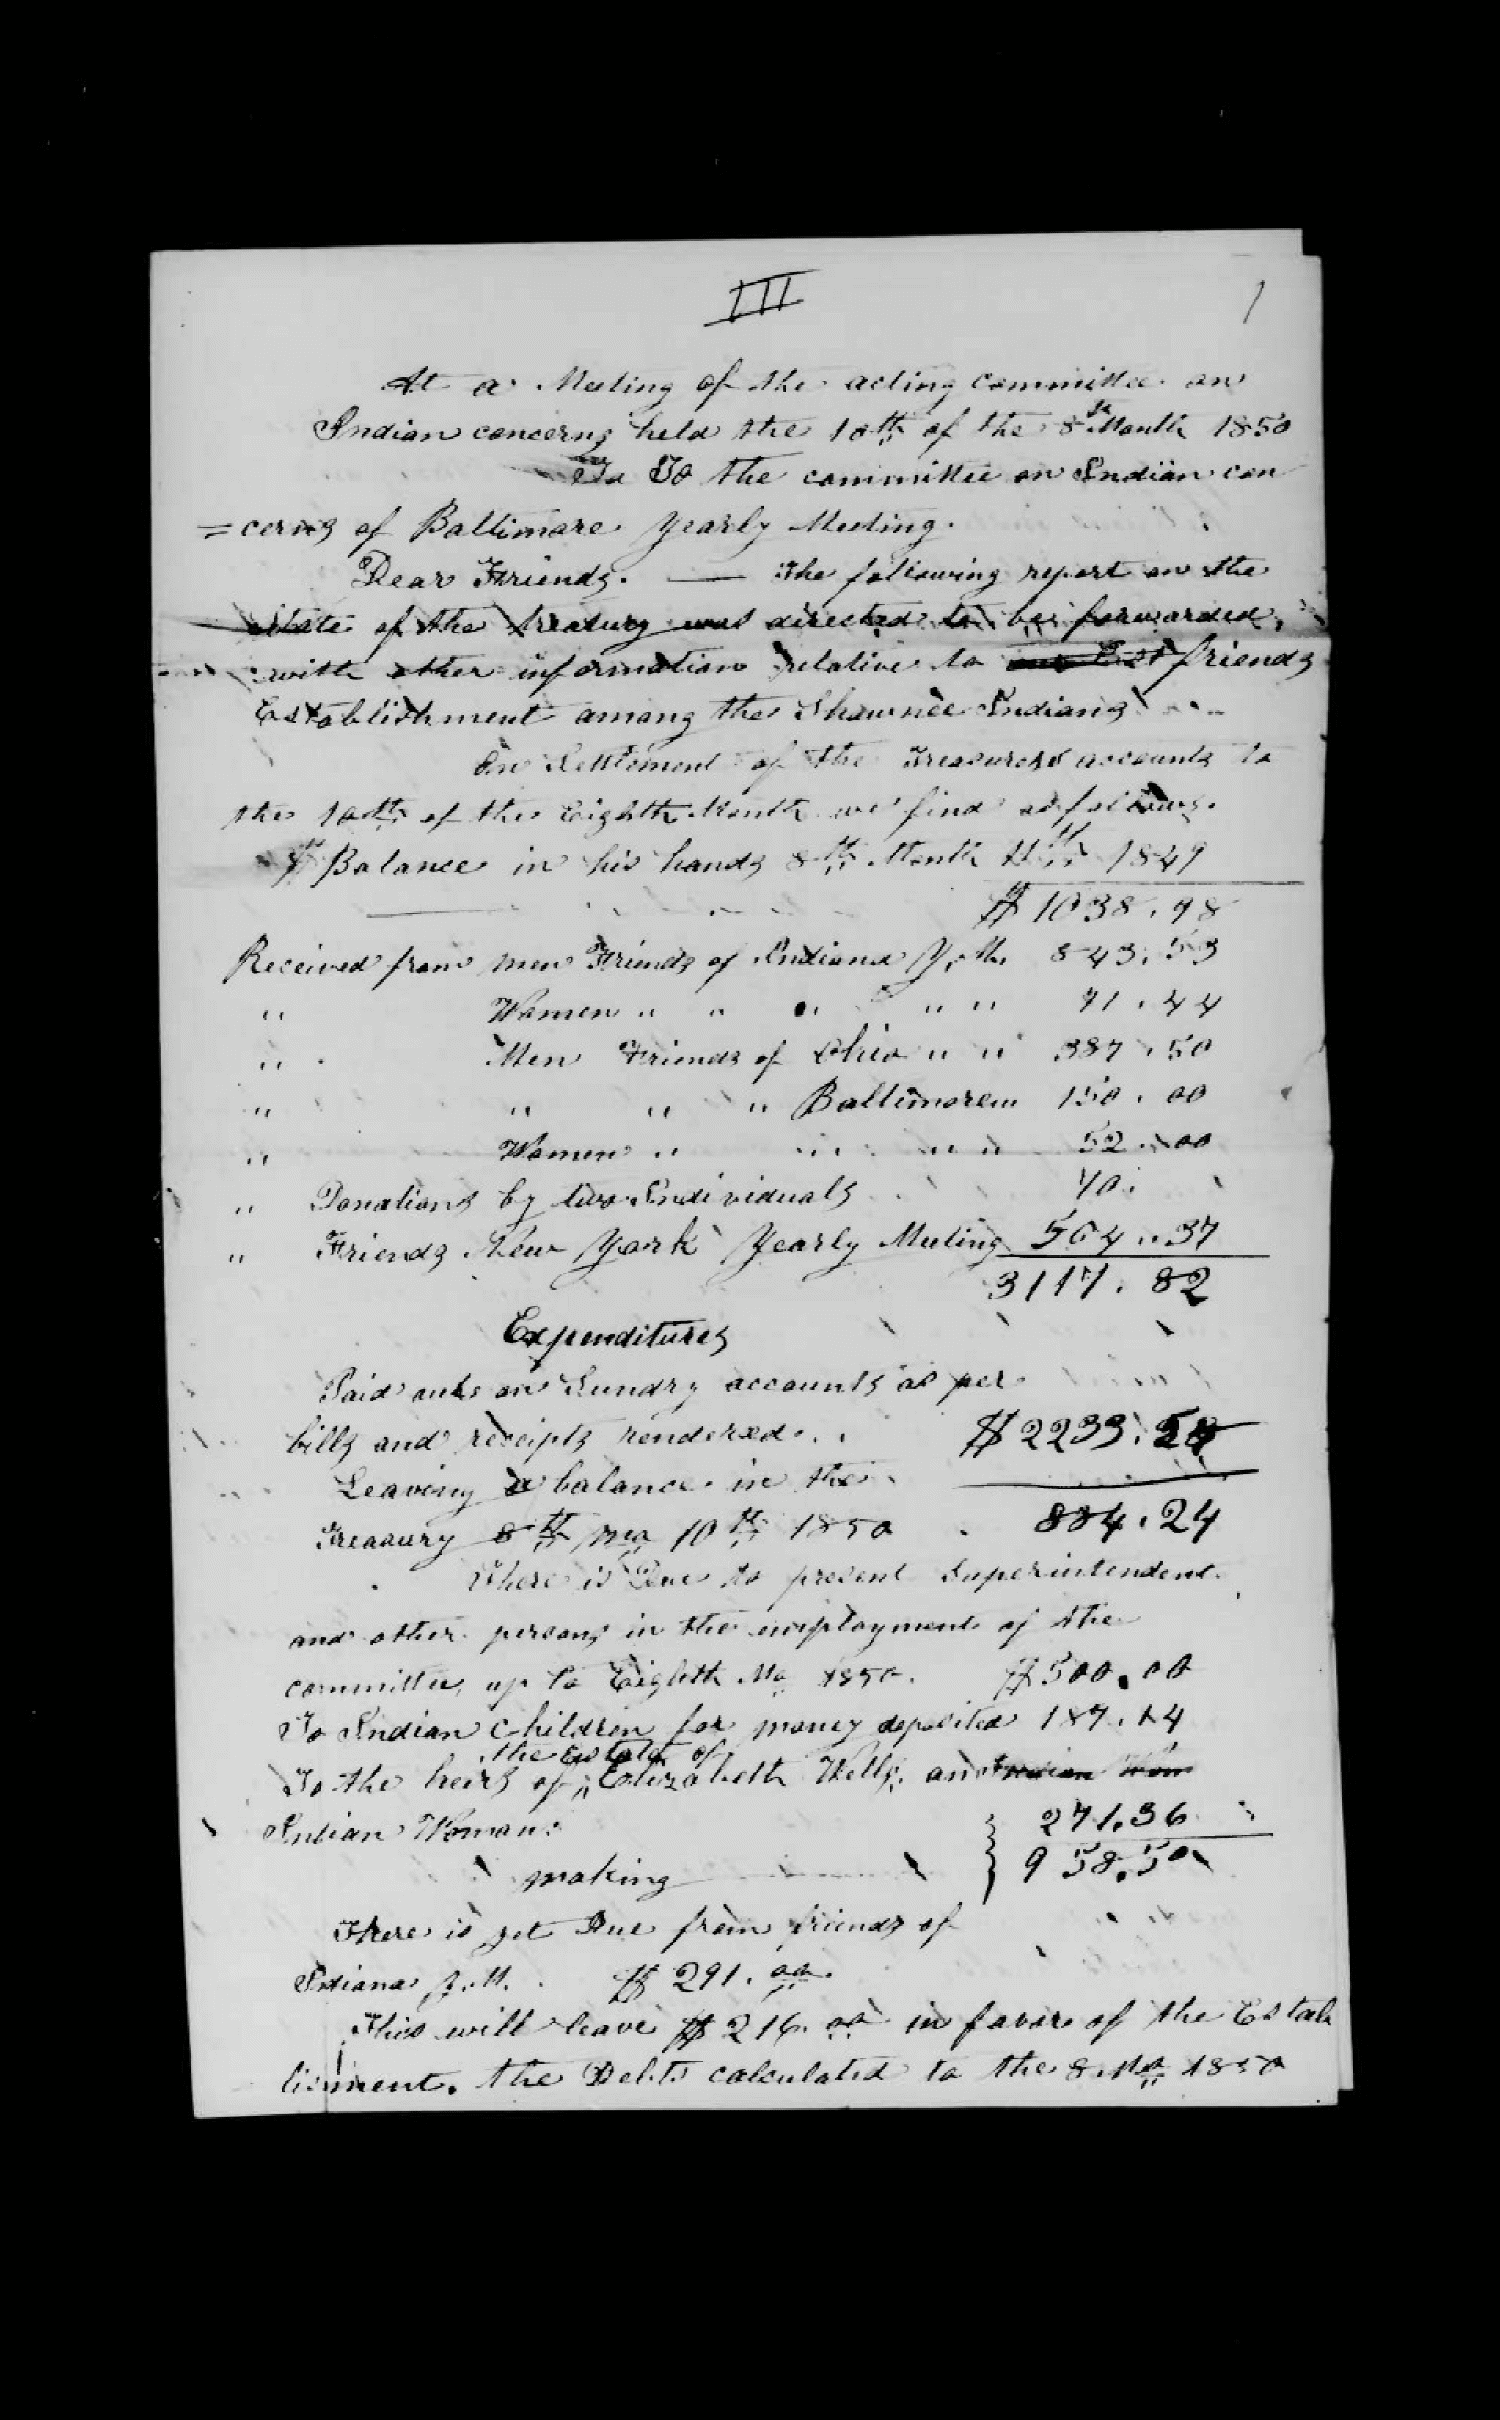 III
1
At a Meeting of the acting committee on
Indian concerns held the 10th of the 8th Month 1850
To To the committee on Indian con
=cerns of Baltimore Yearly Meeting.
Dear Friends. — The following report on the
state of the treasury was directed to be forwarded,
with other information relative to friends
Establishment among the Shawnee Indians
On Settlement of the Treasurers accounts to
the 10th of the Eighth Month we find as follows.
Balance in his hands 8th Month 11th 1849
$1038.98
Received from men Friends of Indiana Y. M. 843.53
" Women " " " " " 91.44
" Men Friends of Ohio " " 387.50
" " " " Baltimore " 150.00
" Women " " " " 52.00
" Donations by two Individuals 40.
" Friends New York Yearly Meeting 564.37
3117.82
Expenditures
Paid out on Sundry accounts as per
bills and receipts rendered. $2233.58
Leaving a balance in the
Treasury 8th mo 10th 1850 . 884.24
There is Due to present Superintendent
and other persons in the employment of the
committee, up to Eighth Mo 1850. $500.00
To Indian Children for money deposited 187.14
the estate of
To the heirs of Elizabeth Wells, an Indian Wom
Indian Woman: 271.36
making 958.50
There is yet Due from friends of
Indiana y. M. $291.00.
This will leave $216.00 in favor of the Estab
lisment. the Debts calculated to the 8. Mo 1850